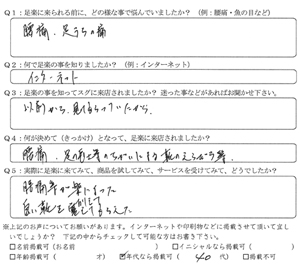 Q1：足楽に来られる前に、どの様な事で悩んでいましたか？（例：腰痛・魚の目など）
腰痛、足うらの痛
Q2：何で足楽の事を知りましたか？（例：インターネット）
インターネット
Q3：足楽の事を知ってスグに来店されましたか？ 迷った事などがあればお聞かせ下さい。
以前から、
Q4：何が決めて（きっかけ）となって、足楽に来店されましたか？
腰痛、足の
Q5：実際に足楽に来てみて、商品を試してみて、サービスを受けてみて、どうでしたか？
腰痛等が楽になった
良い靴を
※上記のお声についてお願いがあります。インターネットや印刷物などに掲載させて頂いて宜しいでしょうか？ 下記の中からチェックして可能な方はお書き下さい。
□名前掲載可（お名前 ） □イニシャルなら掲載可（ ）
□年齢掲載可（ 才） ☑年代なら掲載可（ 40 代） □掲載不可